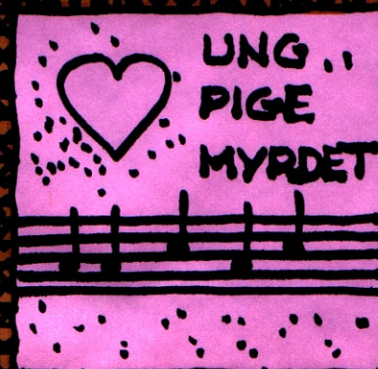 UNG..
PIGE
MYRDET